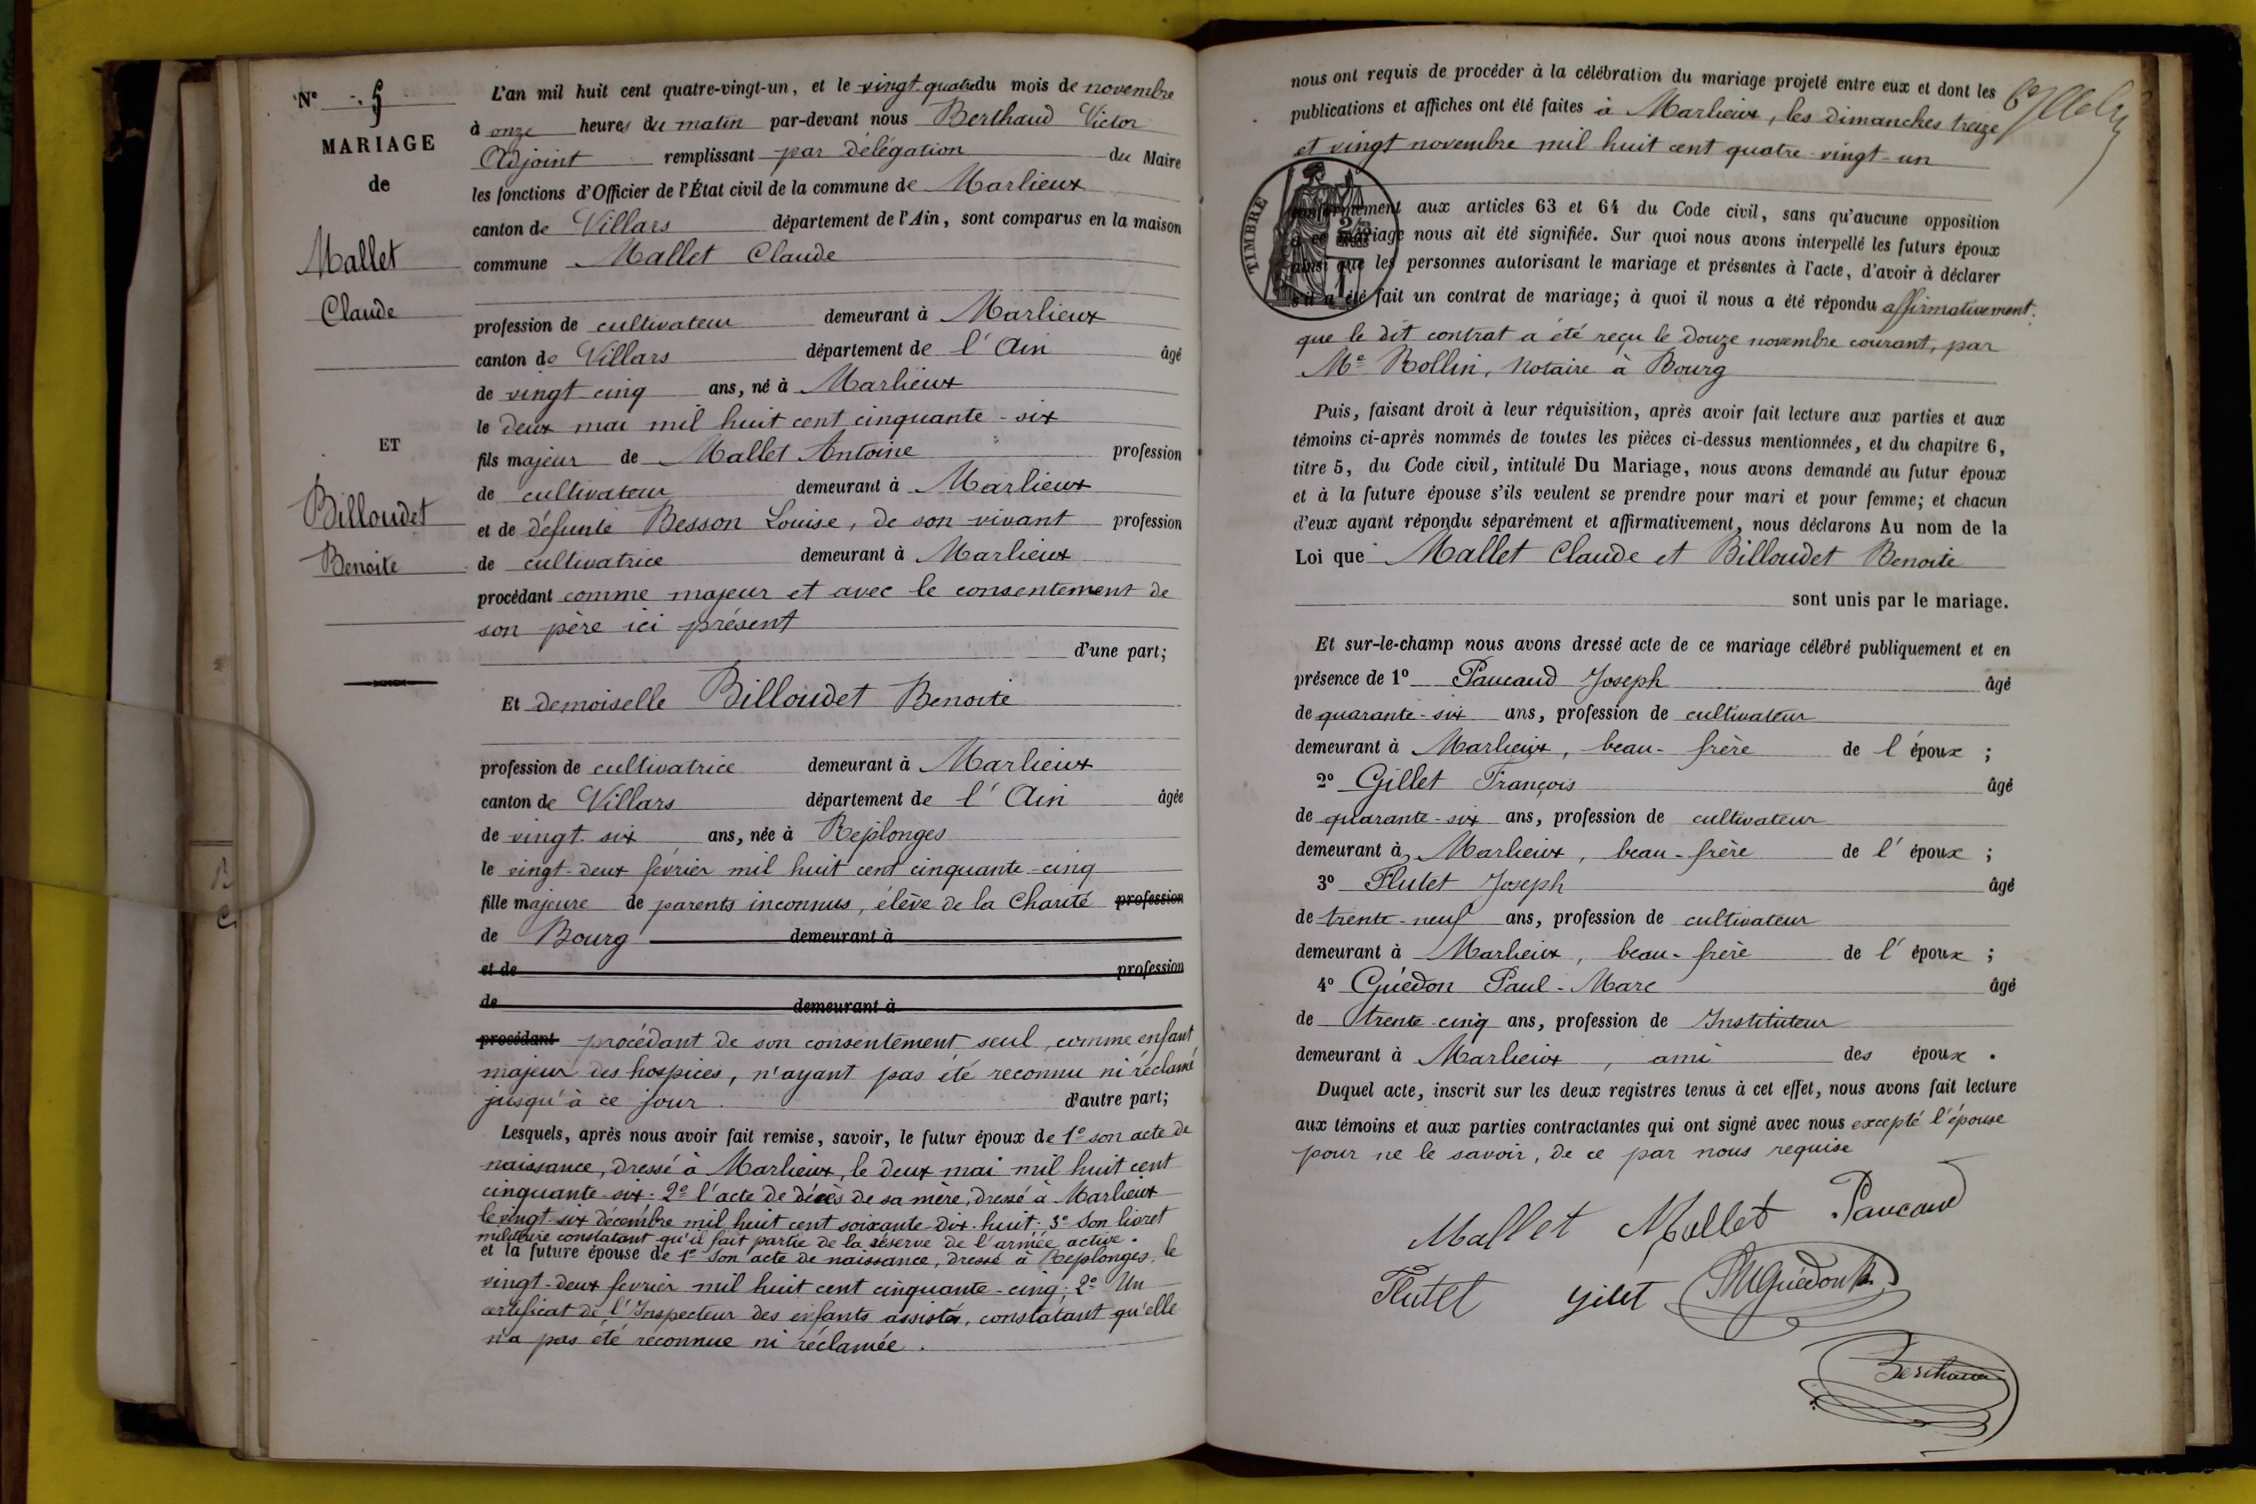 N° 5
MARIAGE
de
Mallet
Claude
ET
Billoudet
Benoite
L'an mil huit cent quatre-vingt-un, et le vingt quatre du mois de novembre
à onze heures du matin par-devant nous Berthaud Victor
Adjoint remplissant par délégation du Maire
les fonctions d'Officier de l'État civil de la commune de Marlieux
canton de Villars département de l'Ain, sont comparus en la maison
commune Mallet Claude
profession de cultivateur demeurant à Marlieux
canton de Villars département de l'Ain âgé
de vingt cinq ans, né à Marlieux
le deux mai mil huit cent cinquante-six
fils majeur de Mallet Antoine profession
de cultivateur demeurant à Marlieux
et de défunte Besson Louise, de son vivant profession
de cultivatrice demeurant à Marlieux
procédant comme majeur et avec le consentement de
son père ici présent
d'une part;
Et demoiselle Billoudet Benoite
profession de cultivatrice demeurant à Marlieux
canton de Villars département de l'Ain âgée
de vingt-six ans, née à Replonges
le vingt-deux février mil huit cent cinquante-cinq
fille majeure de parents inconnus, élève de la Charité profession
de Bourg demeurant à
et de profession
de demeurant à
procédant procédant de son consentement seul, comme enfant
majeur des hospices, n'ayant pas été reconnu ni réclamé
jusqu'à ce jour. d'autre part;
Lesquels, après nous avoir fait remise, savoir, le futur époux de 1° son acte de
naissance, dressé à Marlieux, le deux mai mil huit cent
cinquante-six. 2° l'acte de décès de sa mère, dressé à Marlieux
le vingt-six décembre mil huit cent soixante-dix-huit. 3° Son livret
militaire constatant qu'il fait partie de la réserve de l'armée active.
et la future épouse de 1° Son acte de naissance, dressé à Replonges, le
vingt-deux février mil huit cent cinquante-cinq; 2° Un
certificat de l'Inspecteur des enfants assistés, constatant qu'elle
n'a pas été reconnue ni réclamée.
B
C
nous ont requis de procéder à la célébration du mariage projeté entre eux et dont les
publications et affiches ont été faites à Marlieux, les dimanches treize
et vingt novembre mil huit cent quatre-vingt-un
TIMBRE
conformément aux articles 63 et 64 du Code civil, sans qu'aucune opposition
à ce mariage nous ait été signifiée. Sur quoi nous avons interpellé les futurs époux
ainsi que les personnes autorisant le mariage et présentes à l'acte, d'avoir à déclarer
s'il a été fait un contrat de mariage; à quoi il nous a été répondu affirmativement.
que le dit contrat a été reçu le douze novembre courant, par
Me Rollin, Notaire à Bourg
Puis, faisant droit à leur réquisition, après avoir fait lecture aux parties et aux
témoins ci-après nommés de toutes les pièces ci-dessus mentionnées, et du chapitre 6,
titre 5, du Code civil, intitulé Du Mariage, nous avons demandé au futur époux
et à la future épouse s'ils veulent se prendre pour mari et pour femme; et chacun
d'eux ayant répondu séparément et affirmativement, nous déclarons Au nom de la
Loi que Mallet Claude et Billoudet Benoite
sont unis par le mariage.
Et sur-le-champ nous avons dressé acte de ce mariage célébré publiquement et en
présence de 1° Paucaud Joseph âgé
de quarante-six ans, profession de cultivateur
demeurant à Marlieux, beau-frère de l'époux;
2° Gillet François âgé
de quarante-six ans, profession de cultivateur
demeurant à Marlieux, beau-frère de l'époux;
3° Flutet Joseph âgé
de trente-neuf ans, profession de cultivateur
demeurant à Marlieux, beau-frère de l'époux;
4° Guédon Paul-Marc âgé
de trente-cinq ans, profession de Instituteur
demeurant à Marlieux, ami des époux.
Duquel acte, inscrit sur les deux registres tenus à cet effet, nous avons fait lecture
aux témoins et aux parties contractantes qui ont signé avec nous excepté l'épouse
pour ne le savoir, de ce par nous requise
Mallet Mallet Paucaud
Flutet gilet PMGuédon
Berthaud